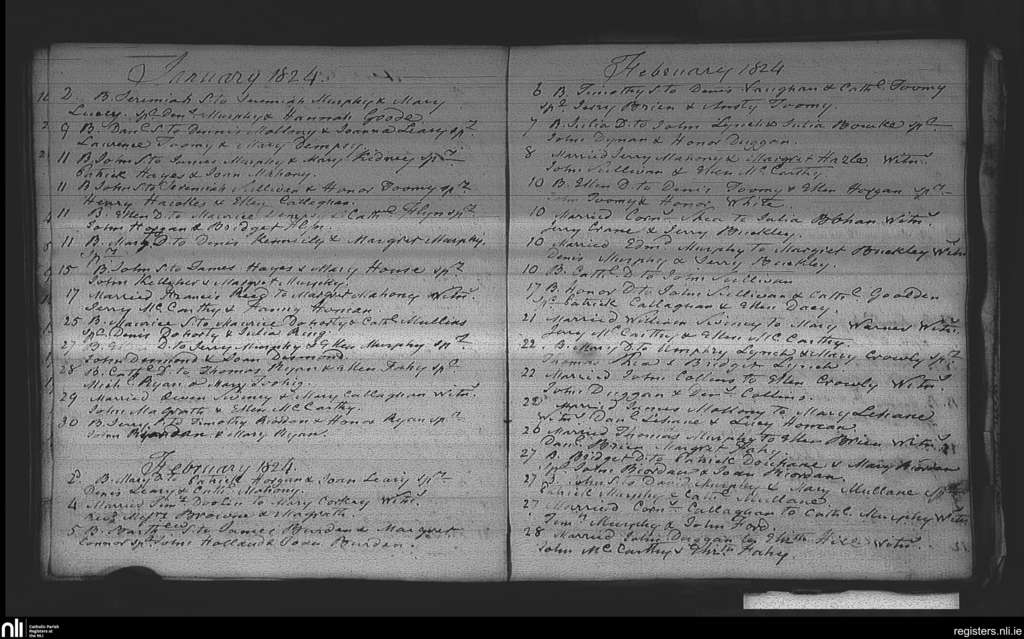 January 1824
2 B. Jeremiah S. to Jeremiah Murphy & Mary
Lucey. Sp.s Den.s Murphy & Hannah Goode
9 B. Dan.l S. to Dennis Mollony & Joanna Leary Sp.s
Lawrence Toomy & Mary Dempsy
11 B. John S. to James Murphy & Mary Kidney Sp.s
Patrick Hayes & Joan Mahony.
11 B. John S. to Jeremiah Sullivan & Honor Toomy Sp.s
Henry & Ellen Callaghan.
11 B. Ellen D. to Maurice & Cath.e Flyn Sp.s
John Horgan & Bridget
11 B. Mary D. to Denis Kennedy & Margret Murphy.
Sp.s
15 B. John S. to James Hayes & Mary House Sp.s
John Kelleher & Margret Murphy.
17 Married Francis Reed to Margret Mahony Witn.s
Jerry McCarthy & Fanny Homan
25 B. Maurice S. to Maurice Doherty & Cath.e Mullins
Sp.s Denis Doherty & Julia Ring
27 B. D. to Jerry Murphy & Ellen Murphy Sp.s
John Desmond & Joan Desmond.
28 B. Cath.e D. to Thomas Ryan & Ellen Fahy Sp.s
Mich.l Ryan & Mary Tookig.
29 Married Owen Swiney & Mary Callaghan Witn.s
John Magrath & Ellen McCarthy.
30 B. Jerry S. to Timothy Riordan & Honor Ryan Sp.s
John Riordan & Mary Ryan.
February 1824.
2 B. Mary D. to Patrick Horgan & Joan Leary Sp.s
Denis Leary & Cath.e Mahony.
4 Married Tim.y to Mary Corkey Witn.s
Brown & Magrath
5 B. Barth.ew S. to James Burden & Margret
Connor Sp.s John Holland & Joan Burden.
February 1824
6 B. Timothy S. to Denis Vaughan & Cath.e Toomy
Sp.s Jerry Brien & Ansty Toomy.
7 B. Julia D. to John Lynch & Julia Bourke Sp.s
John Dynan & Honor Duggan.
8 Married Jerry Mahony & Margret Hazle Witn.s
John Sullivan & Ellen McCarthy
10 B. Ellen D. to Denis Toomy & Ellen Horgan Sp.s
John Toomy & Honor White.
10 Married Corn.s Shea to Julia Bohan Witn.s
Jerry Crane & Jerry Buckley.
10 Married Edm.d Murphy to Margret Buckley Witn.s
Denis Murphy & Jerry Buckley.
10 B. Cath.e D. to John Sullivan
17 B. Honor D. to John Sullivan & Cath.e Goolden
Sp.s Patrick Callaghan & Ellen Dacy.
21 Married William Swiney to Mary Warner Witn.s
Jerry McCarthy & Ellen McCarthy.
22 B. Mary D. to Umphry Lynch & Mary Crowly Sp.s
Thomas Shea & Bridget Lynch
22 Married John Collins to Ellen Crowly Witn.s
John Duggan & Collins.
22 Married James Mollony to Mary Lehane
Witn.s Dan.l Lehane & Lucy Homan
20 Married Thomas Murphy to Ellen Brien Witn.s
Dan.l Brien Margret Fahy
27 B. Bridget D. to Patrick & Mary Riordan
Sp.s John Riordan & Joan Riordan
27 B. John S. to David Murphy & Mary Mullane Sp.s
Patrick Murphy & Cath.e Mullane
27 Married Corn.s Callaghan to Cath.e Murphy Witn.s
Murphy & John Ford.
28 Married John Duggan to Eliz.th Hill Witn.s
John McCarthy & Eliz.th Fahy
nli Catholic Parish
Registers at
the NLI
registers.nli.ie